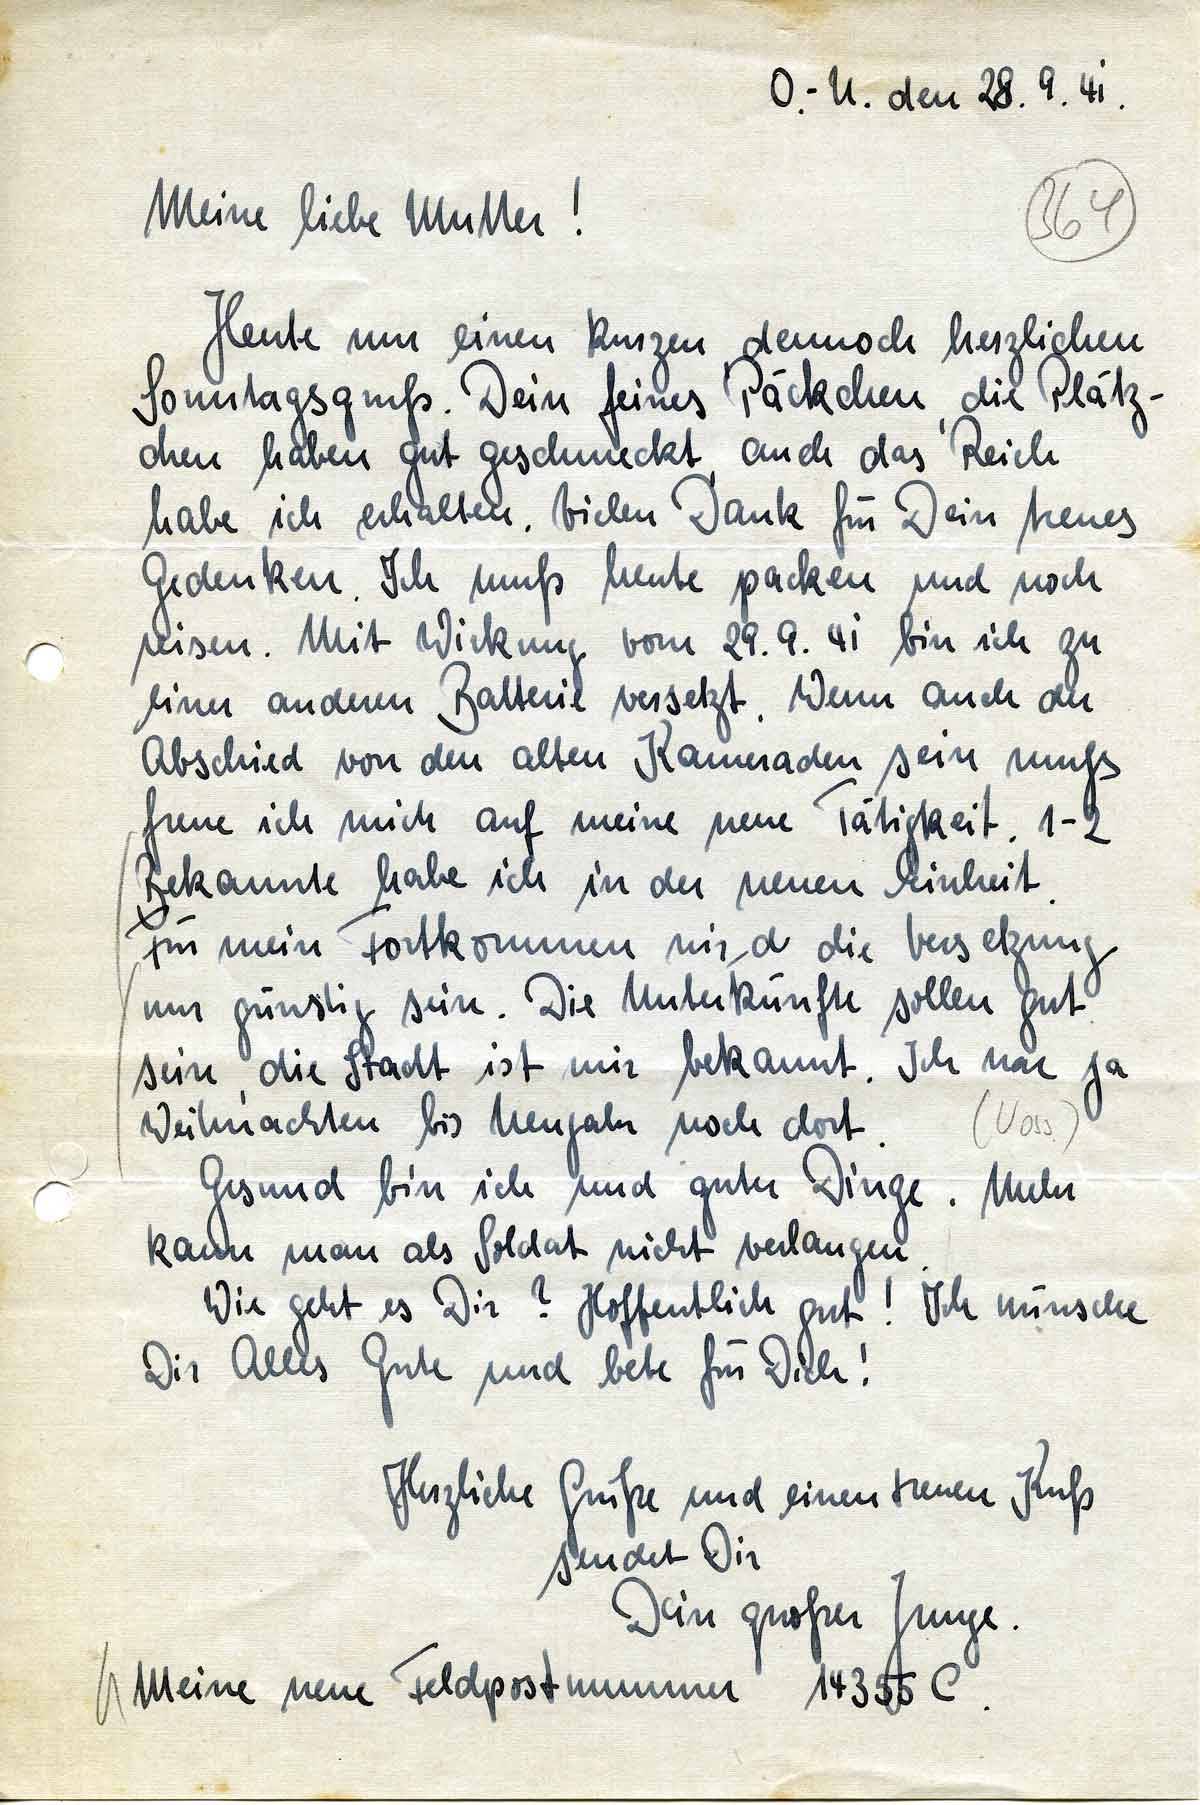 O.-U. den 28. 9. 41.
364
Meine liebe Mutter!
Heute nur einen kurzen, dennoch herzlichen
Sonntagsgruß. Dein feines Päckchen, die Plätz-
chen haben gut geschmeckt, auch das Reich
habe ich erhalten. Vielen Dank für Dein treues
Gedenken. Ich muß heute packen und noch
reisen. Mit Wirkung vom 29. 9. 41 bin ich zu
einer anderen Batterie versetzt. Wenn auch der
Abschied von den alten Kameraden sein muß
freue ich mich auf meine neue Tätigkeit. 1-2
Bekannte habe ich in der neuen Einheit.
Für mein Fortkommen wird die Versetzung
nur günstig sein. Die Unterkünfte sollen gut
sein, die Stadt ist mir bekannt. Ich war ja
Weihnachten bis Neujahr noch dort.
Gesund bin ich und guter Dinge. Mehr
kann man als Soldat nicht verlangen.
Wie geht es Dir? Hoffentlich gut! Ich wünsche
Dir Alles Gute und bete für Dich!
Herzliche Grüße und einen treuen Kuß
sendet Dir
Dein großer Junge.
Meine neue Feldpostnummer 14355 C.